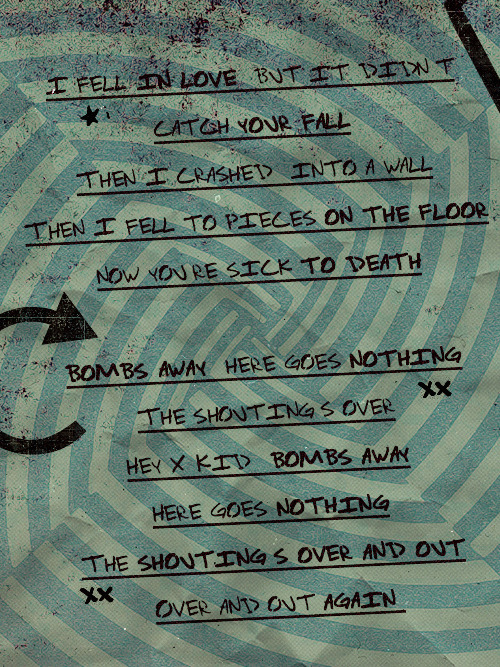 I FELL IN LOVE BUT IT DIDN T
CATCH YOUR FALL
THEN I CRASHED INTO A WALL
THEN I FELL TO PIECES ON THE FLOOR
NOW YOU RE SICK TO DEATH
BOMBS AWAY HERE GOES NOTHING
XX
THE SHOUTING S OVER
HEY X KID BOMBS AWAY
HERE GOES NOTHING
THE SHOUTING S OVER AND OUT
XX
OVER AND OUT AGAIN